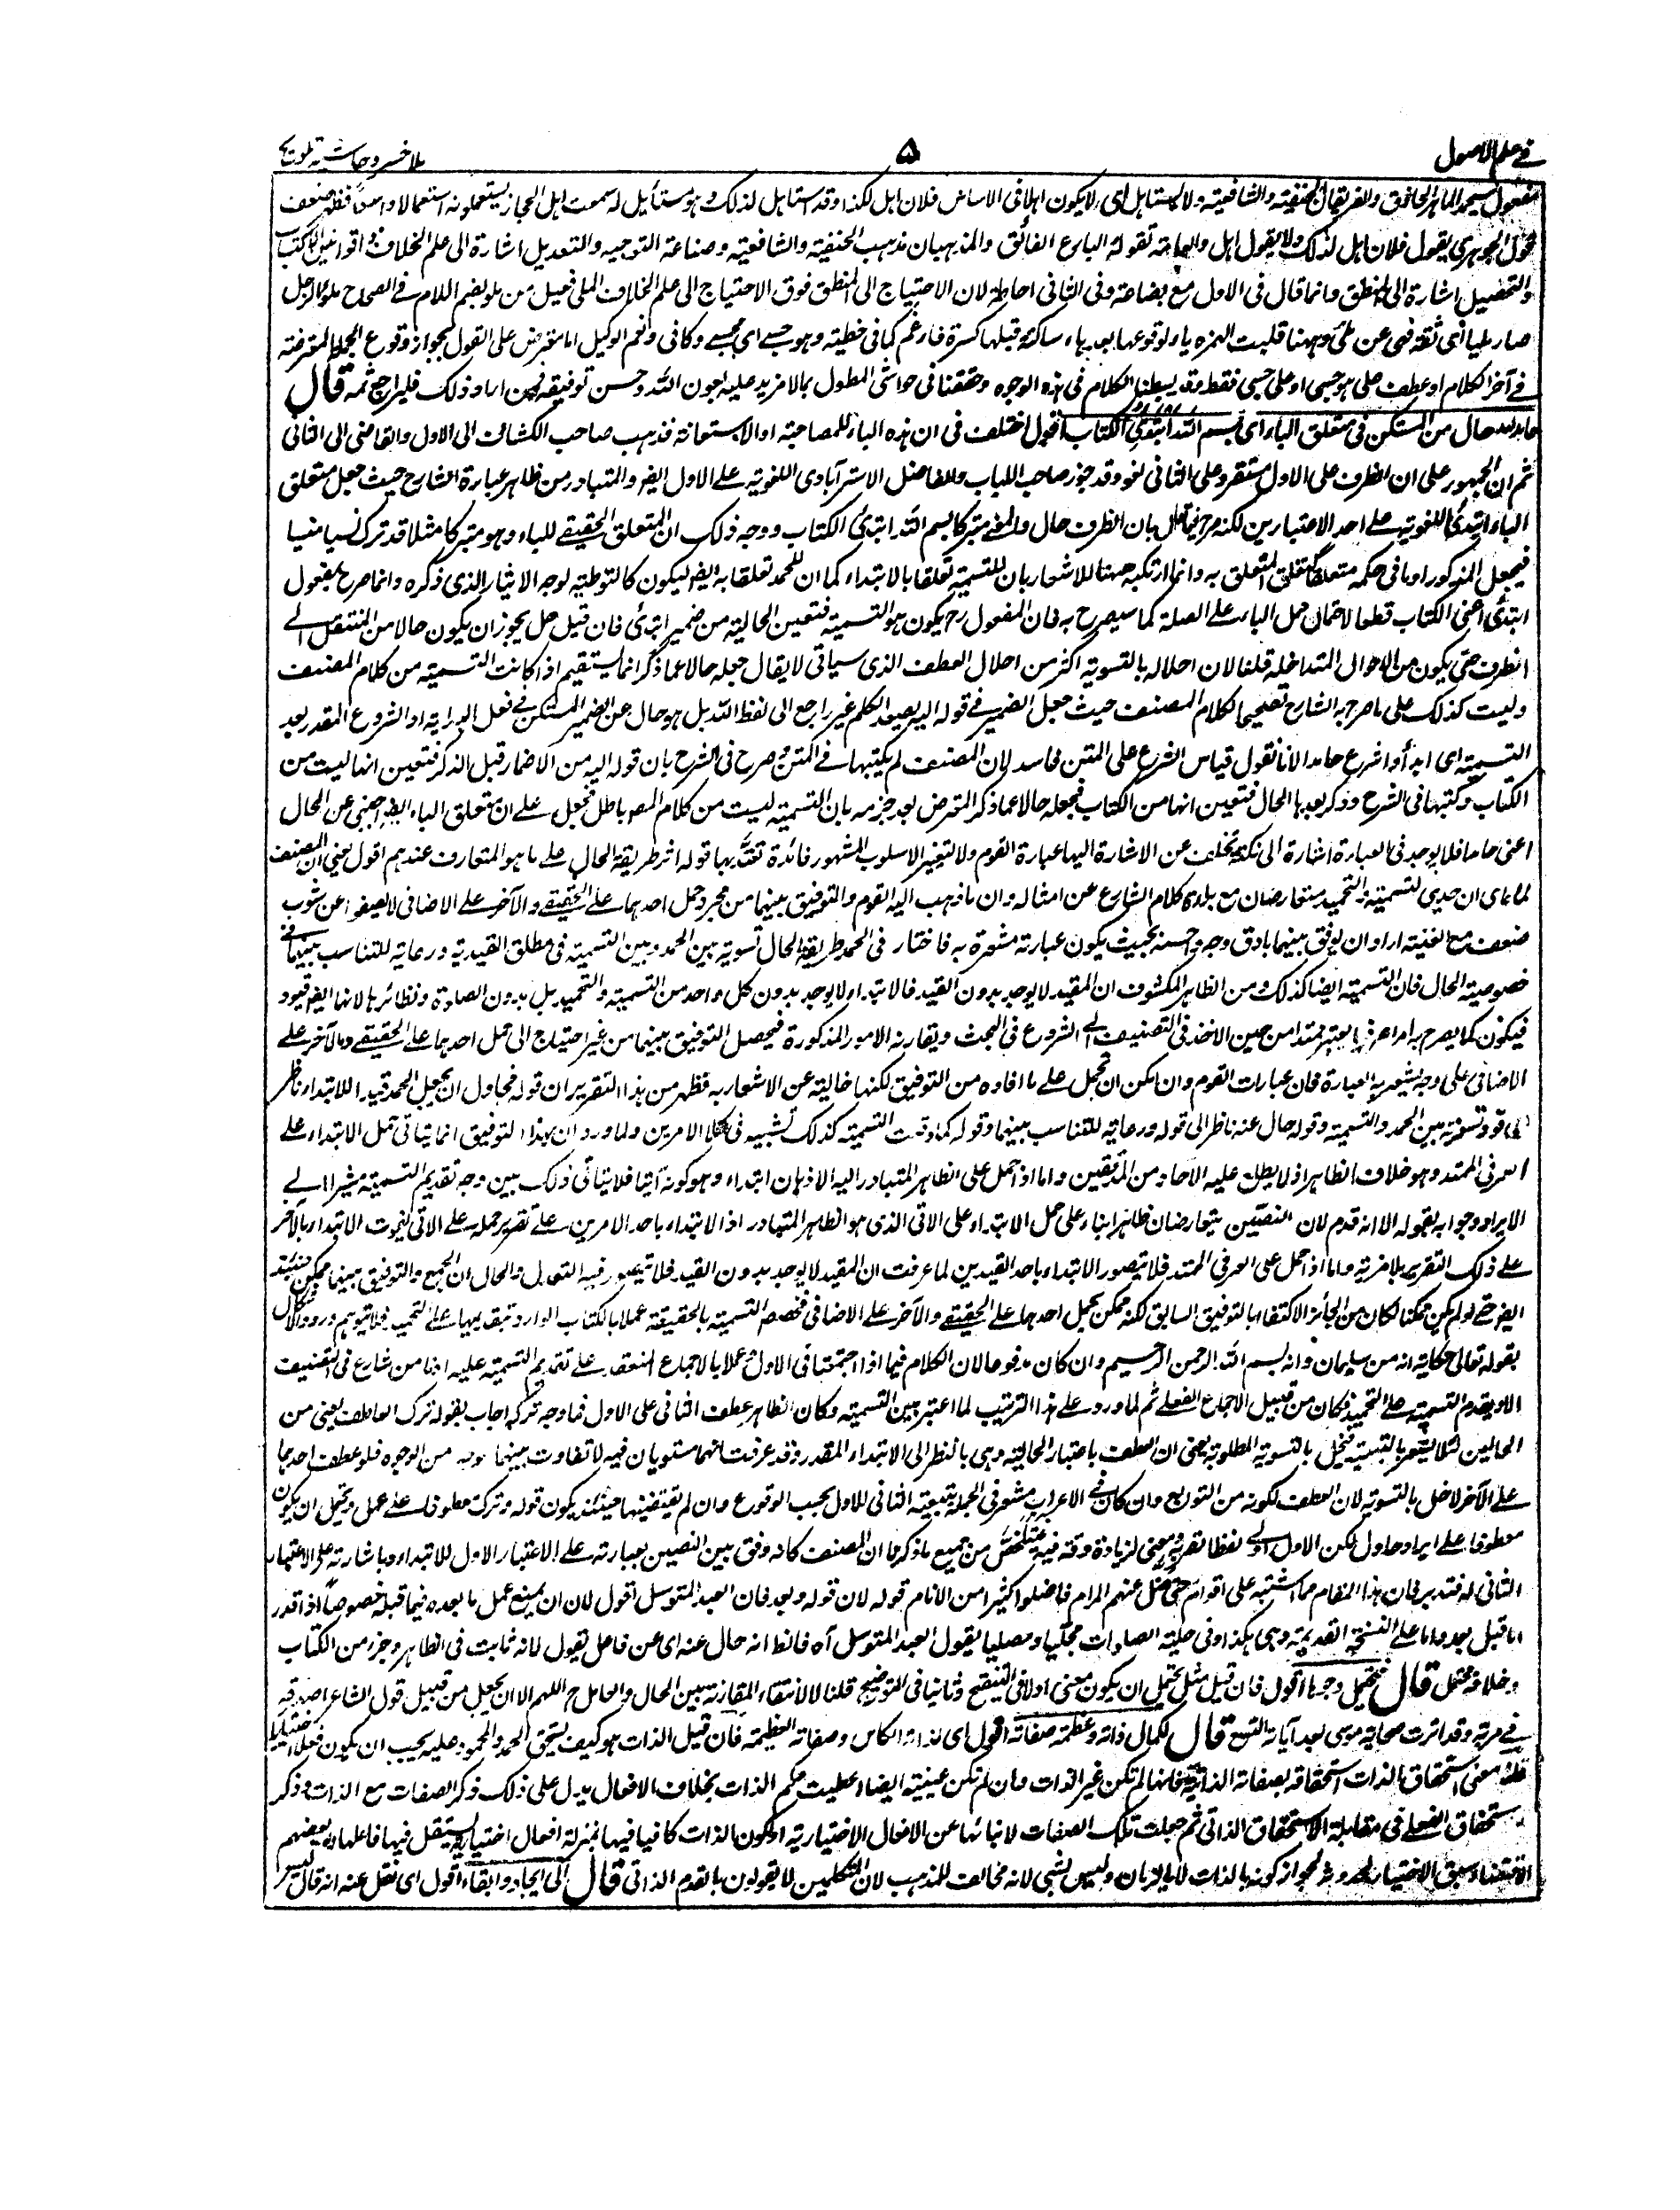 في علم الاصول ۵ ملا خسرو حاشية تلويح
مفعول الماهر الحاذق والفريقان الحنفية والشافعية ولا يستاهل اى لا يكون اهلا فى الاساس فلان اهل لكذا وقد استاهل لذلك وهو مستاهل له سمعت اهل الحجاز يستعملونه استعمالا واسعا فظهر ضعف
الجوهري يقول فلان اهل لذلك ولا يقول اهل والعامة تقوله البارع الفائق والمذهبان مذهب الحنفية والشافعية وصناعة التوجيه والتعديل اشارة الى علم الخلاف و قوانين
والتحصيل اشارة الى المنطق وانما قال فى الاول مع بضاعة وفى الثانى احاطة لان الاحتياج الى المنطق فوق الاحتياج الى علم الخلاف الملى فعيل من ملو بضم اللام في الصحاح ملؤ الرجل
صار مليا اى ثقة وههنا قلبت الهمزة ياء لوقوعها بعد ياء ساكنة قبلها كسرة فادغم كما فى خطية وهو حسبي اى محسبي وكافى ونعم الوكيل اما معترض على القول بجواز وقوع الجملة المعترضة
في آخر الكلام او عطف على هو حسبى او على حسبى فقط وقد بسطنا الكلام فى هذه الوجوه وحققنا فى حواشى المطول بما لا مزيد عليه بعون الله وحسن توفيقه فمن اراد ذلك فليراجع ثمه قال
حامدا لله حال من المستكن فى متعلق الباء اى بسم الله ابتدئ الكتاب اقول اختلف فى ان هذه الباء للمصاحبة او الاستعانة فذهب صاحب الكشاف الى الاول والقاضى الى الثانى
ثم ان الجمهور على ان الظرف على الاول مستقر وعلى الثانى لغو وقد جوز صاحب اللباب والفاضل الاسترآبادى اللغوية على الاول ايضا والمتبادر من ظاهر عبارة الشارح حيث جعل متعلق
الباء ابتدئ اللغوية على احد الاعتبارين لكنه بان الظرف حال والمعنى متبركا بسم الله ابتدئ الكتاب ووجه ذلك ان المتعلق الحقيقي للباء وهو متبركا مثلا قد ترك نسيا منسيا
فيجعل المذكور او ما فى حكمه متعلقا تعلق المتعلق به وانما ارتكبه ههنا للاشعار بان للتسمية تعلقا بالابتداء كما ان للحمد تعلقا به ايضا ليكون كالتوطية لوجه الايثار الذى ذكره وانما صرح بمفعول
ابتدئ اعنى الكتاب قطعا لاحتمال حمل الباء على الصلة كما سيصرح به فان المفعول ح يكون هو التسمية فتعين الحالية من ضمير ابتدئ فان قيل هل يجوز ان يكون حالا من المنتقل الى
الظرف حتى يكون من الاحوال المتداخلة قلنا لا لان اخلاله بالتسوية اكثر من اخلال العطف الذى سياتى لا يقال جعله حالا عما ذكر انما يستقيم اذا كانت التسمية من كلام المصنف
وليست كذلك على ما صرح به الشارح تصحيحا لكلام المصنف حيث جعل الضمير في قوله اليه يصعد الكلم غير راجع الى لفظ الله بل هو حال عن الضمير المستكن في فعل البداية او الشروع المقدر بعد
التسمية اى ابدأ او اشرع حامدا لانا نقول قياس الشرع على المتن فاسد لان المصنف لم يكتبها في المتن صرح فى الشرح بان قوله اليه من الاضمار قبل الذكر فتعين انها ليست من
الكتاب وكتبها فى الشرح وذكر بعدها الحال فتعين انها من الكتاب فجعله حالا عما ذكر المعترض بعد جزمه بان التسمية ليست من كلام المص باطل فجعل على ان متعلق الباء ايضا اجنبى عن الحال
اعنى حامدا فلا يوجد فى العبارة اشارة الى نكتة تخلف عن الاشارة اليها عبارة القوم ولا لتغيير الاسلوب المشهور فائدة تعتد بها قوله اثر طريقة الحال على ما هو المتعارف عندهم اقول يعنى ان المصنف
لما راى ان حديثى التسمية والتحميد متعارضان مع كلام الشارع عن امثاله وان ما ذهب اليه القوم والتوفيق بينهما من مجرد حمل احدهما على الحقيقي والآخر على الاضافى لا يصفو عن شوب
ضعف اراد ان يوفق بينهما بادق وجه واحسنه بحيث يكون عبارته مشعرة به فاختار فى الحمد طريقة الحال تسوية بين الحمد وبين التسمية فى مطلق القيدية ورعاية للتناسب بينهما في
خصوصية الحال فان التسمية ايضا كذلك ومن الظاهر المكشوف ان المقيد لا يوجد بدون القيد فالابتداء لا يوجد بدون كل واحد من التسمية والتحميد بل بدون الصلوة ونظائرها لانها ايضا قيود
فيكون كما يصرح به امرا عرفيا يعتبر ممتدا من حين الاخذ فى التصنيف الى الشروع فى البحث ويقارنه الامور المذكورة فيحصل التوفيق بينهما من غير احتياج الى حمل احدهما على الحقيقي والآخر على
الاضافى على وجه يشعر به العبارة فان عبارات القوم وان امكن ان تحمل على ما افاده من التوفيق لكنها خالية عن الاشعار به فظهر من هذا التقرير ان قوله فحاول ان يجعل الحمد قيدا للابتداء ناظر
الى قوله تسوية بين الحمد والتسمية وقوله حال عنه ناظر الى قوله ورعاية للتناسب بينهما وقوله كما وقعت التسمية كذلك تشبيه فى كلا الامرين ولما ورد ان هذا التوفيق انما يتاتى بحمل الابتداء على
العرفي الممتد وهو خلاف الظاهر اذ لا يطلع عليه الا آحاد من المدققين واما اذا حمل على الظاهر المتبادر اليه الاذهان ابتداء وهو كونه آنيا فلا يتاتى ذلك بين وجه تقديم التسمية مشيرا الى
الايراد وجوابه بقوله الا انه قدم لان النصين يتعارضان ظاهرا بناء على حمل الابتداء على الآنى الذى هو الظاهر المتبادر اذ الابتداء باحد الامرين على تقدير حمله على الآنى يفوت الابتداء بالآخر
على ذلك التقرير بلا مرية واما اذا حمل على العرفى الممتد فلا يتصور الابتداء باحد القيدين لما عرفت ان المقيد لا يوجد بدون القيد فلا يتصور فيه التعارض والحال ان الجمع والتوفيق بينهما ممكن حينئذ
ايضا حتى لو لم يكن ممكنا لكان من الجائز الاكتفاء بالتوفيق السابق لكنه ممكن بحمل احدهما على الحقيقي والآخر على الاضافى فخصص التسمية بالحقيقة عملا بالكتاب الوارد بتقديمها على التحميد فلا يتوهم ورود الاشكال
بقوله تعالى حكاية انه من سليمان وانه بسم الله الرحمن الرحيم وان كان مدفوعا لان الكلام فيما اذا اجتمعتا فى الاول او عملا بالاجماع المنعقد على تقديم التسمية عليه اذ ما من شارع فى التصنيف
الا ويقدم التسمية على التحميد فكان من قبيل الاجماع الفعلى ثم لما ورد على هذا الترتيب لما اعتبر بين التسمية وكان الظاهر عطف الثانى على الاول فما وجه تركه اجاب بقوله ترك العاطف يعنى من
الحالين لئلا يشعر بالتبعية فيخل بالتسوية المطلوبة يعنى ان العطف باعتبار الحالية وهى بالنظر الى الابتداء المقدر وقد عرفت انهما مستويان فيه لا تفاوت بينهما بوجه من الوجوه فلو عطف احدهما
على الآخر لاخل بالتسوية لان العطف لكونه من التوابع وان كان في الاعراب مشعر فى الجملة بتبعية الثانى للاول بحسب الوقوع وان لم يقتضها حينئذ يكون قوله وترك معطوفا على عمل ويحتمل ان يكون
معطوفا على ايراد حاول لكن الاول اولى لفظا لقربه ومعنى لزيادة دقة فيه تلخص من جميع ما ذكر ان المصنف كانه وفق بين النصين بعبارته على الاعتبار الاول للابتداء وباشارته على الاعتبار
الثانى له فتدبر فان هذا المقام مما اشتبه على اقوام حتى ضل عنهم المرام فاضلوا كثيرا من الانام قوله لان قوله وبعد فان العبد المتوسل اقول لان ان يمنع عمل ما بعده فيما قبله خصوصا اذا قدر
اما قبل بعد واما على النسخة القديمة وهى هكذا وفى حلبة الصلوات مجليا ومصليا يقول العبد المتوسل آه فالظ انه حال عنه اى عن فاعل يقول لما انه ثابت فى الظاهر وجزء من الكتاب
وخلافه محتمل قال فيحتمل وجوها اقول فان قيل مثلى يحتمل ان يكون معنى اولا فى التنقيح وثانيا فى التوضيح قلنا لا لانتفاء المقارنة بين الحال والعامل ح اللهم الا ان يجعل من قبيل قول الشاعر
وقد اثرت صحابة موسى بعد آياته التسع قال لكمال ذاته وعظمة صفاته اقول اى لذاته الكامل وصفاته العظيمة فان قيل الذات هو كيف يستحق الحمد والمحمود عليه يجب ان يكون فعلا اختياريا
قلنا معنى استحقاق الذات استحقاقه بصفاته الذاتية فانها لم تكن غير الذات وان لم تكن عينية ايضا اعطيت حكم الذات بخلاف الافعال يدل على ذلك ذكر الصفات مع الذات وذكر
استحقاق الفعل فى مقابلة الاستحقاق الذاتى ثم جعلت تلك الصفات لانبائها عن الافعال الاختيارية او لكون الذات كافيا فيها بمنزلة افعال اختيارية يستقل فيها فاعلها بعضهم
الاقتضاء سبق الاختيار الحدوث لجواز كونه بالذات لا بالزمان وليس بشئ لانه مخالف للمذهب لان المتكلمين لا يقولون بالقدم الذاتى قال الى ايجاد وابقاء اقول اى نقل عنه انه قال ليس